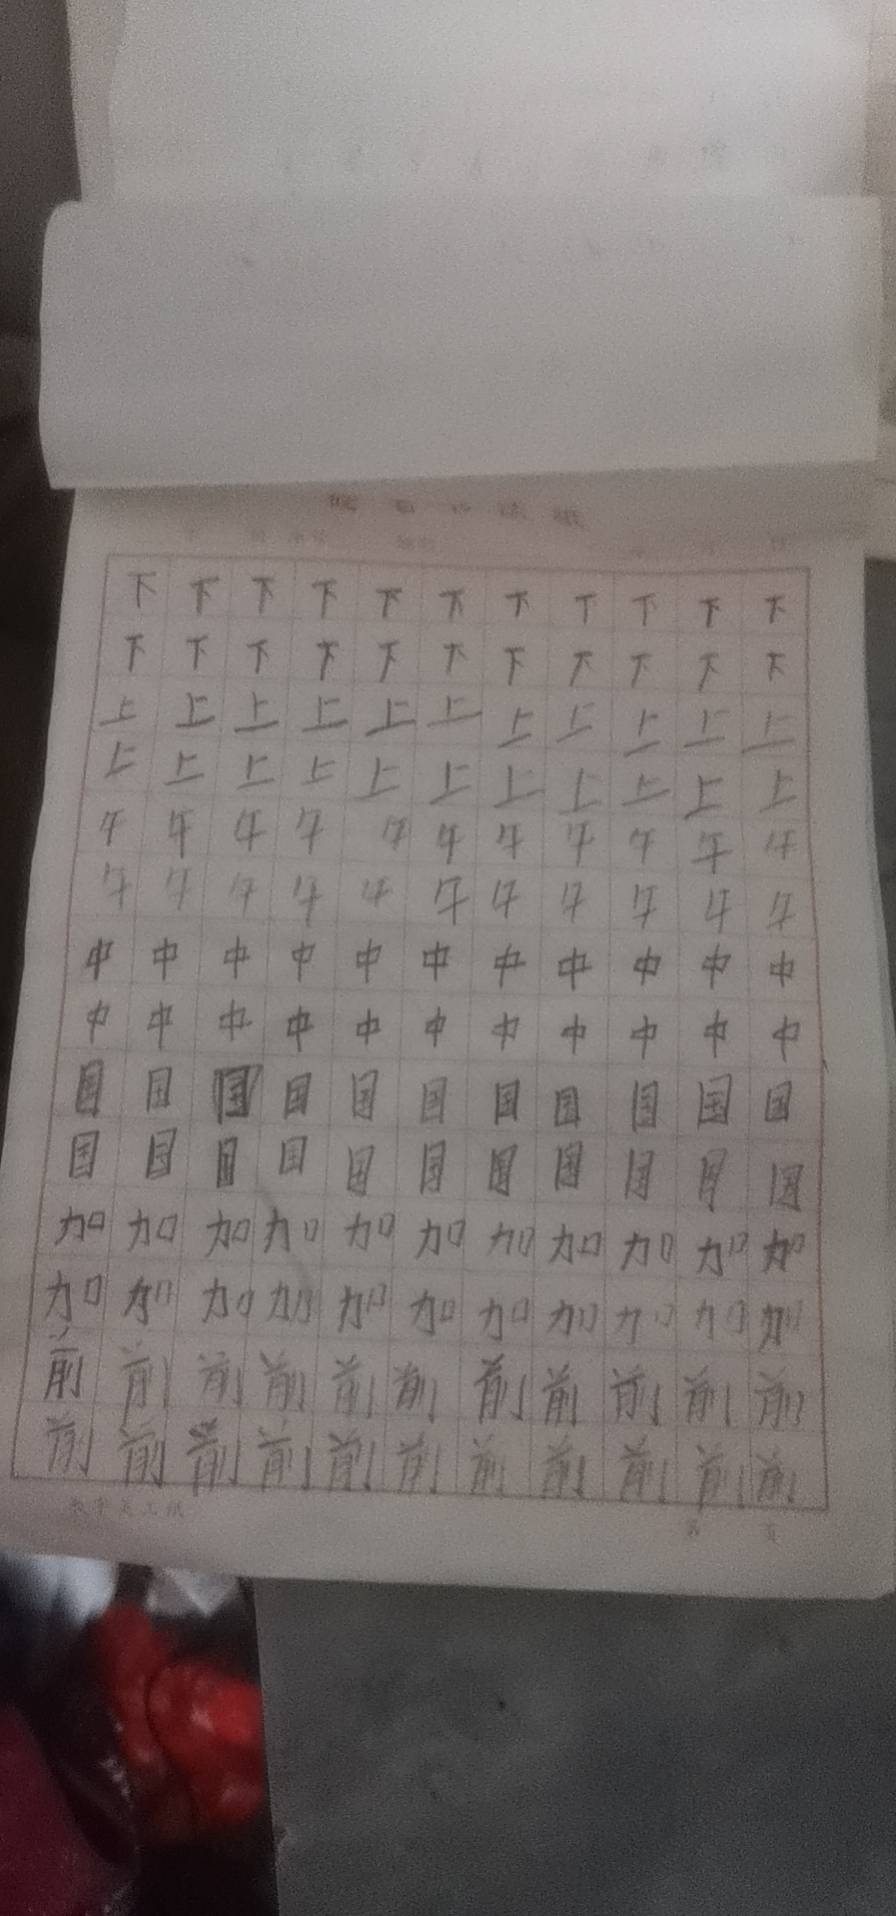 下下下下下下下下下下下
下下下下下下下下下下下
上上上上上上上上上上上
上上上上上上上上上上上
午午午午午午午午午午午
午午午午午午午午午午午
中中中中中中中中中中中
中中中中中中中中中中中
国国国国国国国国国国国
国国国国国国国国国国国
加加加加加加加加加加加
加加加加加加加加加加加
前前前前前前前前前前前
前前前前前前前前前前前
第 页